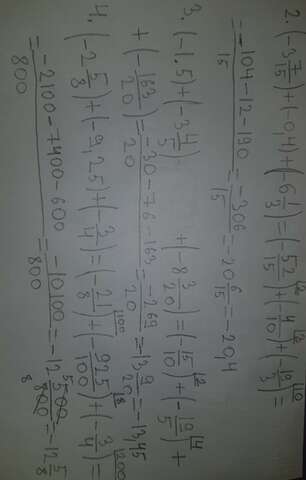 2. (-3 7/15) + (-0,4) + (-6 1/3) = (-52/15) + (-4/10) + (-19/3) =
= -104-12-190/15 = -306/15 = -20 6/15 = -20,4
3. (-1.5) + (-3 4/5) + (-8 3/20) = (-15/10) + (-19/5) +
+ (-163/20) = -30-76-163/20 = -269/20 = -13 9/20 = -13,45
4. (-2 5/8) + (-9,25) + (-3/4) = (-21/8) + (-925/100) + (-3/4) =
= -2100-7400-600/800 = -10100/800 = -12 500/800 = -12 5/8